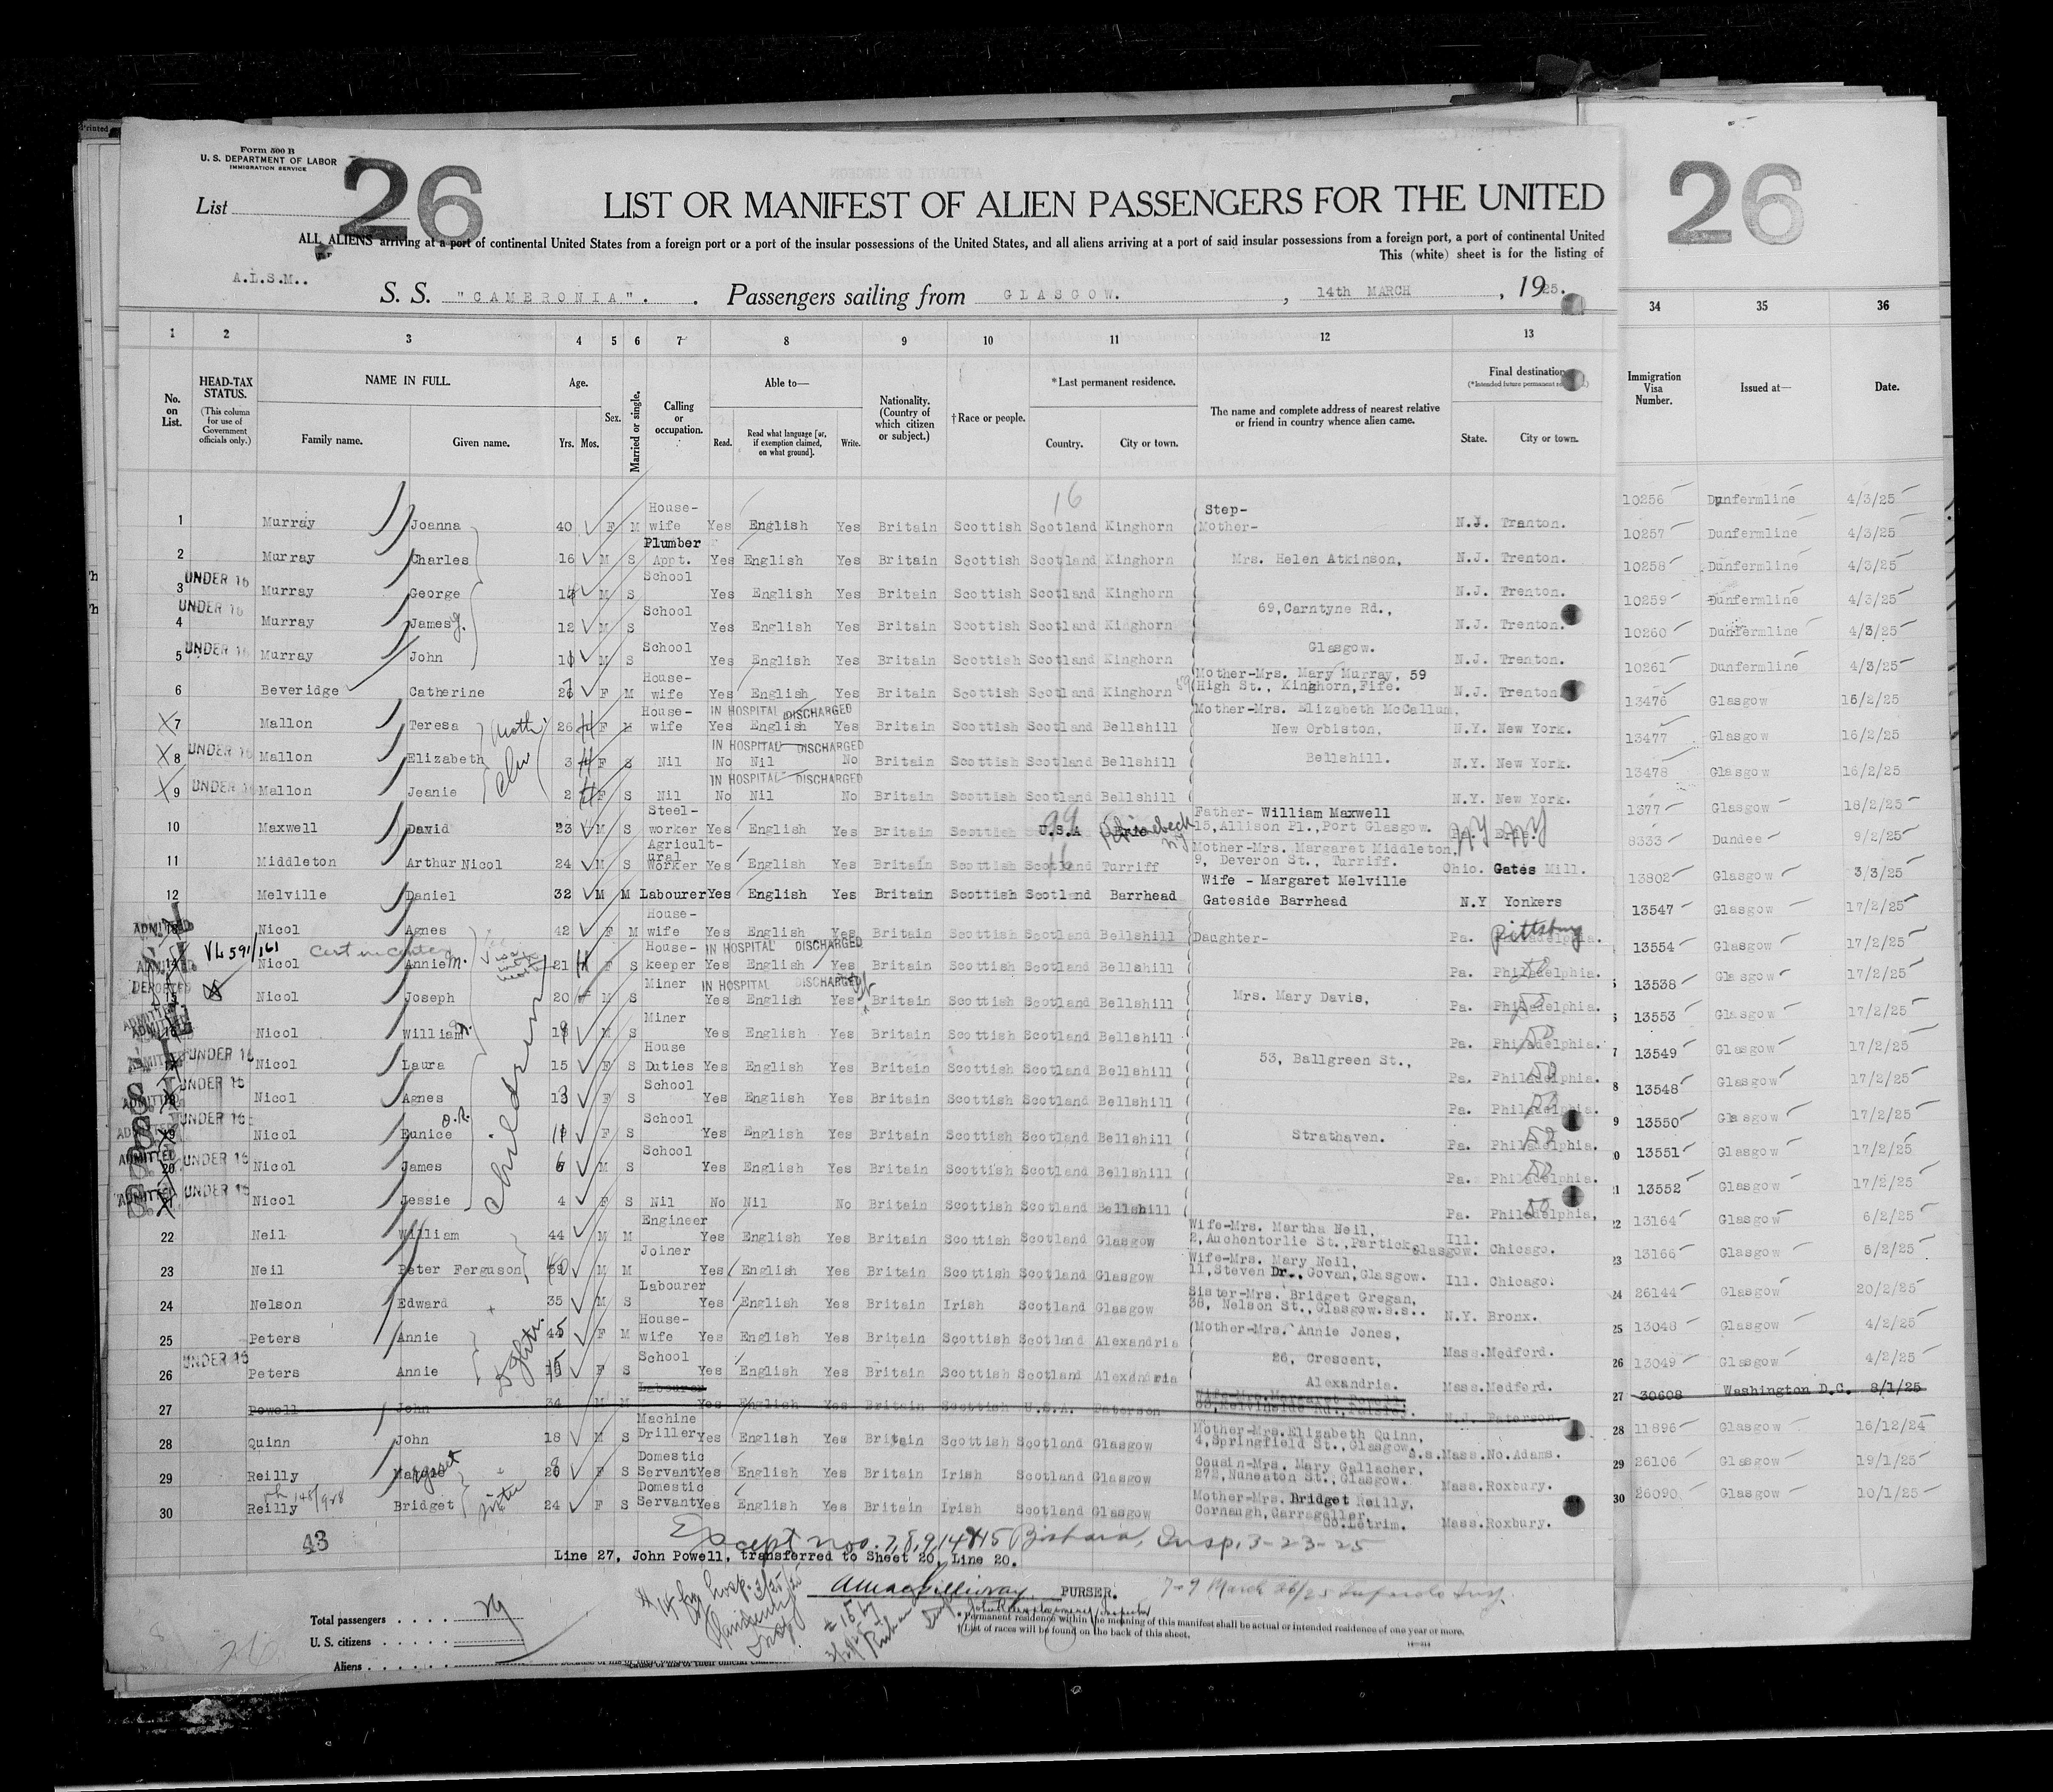 Form 500 B
U. S. DEPARTMENT OF LABOR
IMMIGRATION SERVICE
26
26
List
LIST OR MANIFEST OF ALIEN PASSENGERS FOR THE UNITED
ALL ALIENS arriving at a port of continental United States from a foreign port or a port of the insular possessions of the United States, and all aliens arriving at a port of said insular possessions from a foreign port, a port of continental United
This (white) sheet is for the listing of
A.L.S.M..
S. S. "CAMERONIA". Passengers sailing from GLASGOW. , 14th MARCH , 1925.
1 2 3 4 5 6 7 8 9 10 11 12 13 34 35 36
No. on List.
HEAD-TAX STATUS.
(This column for use of Government officials only.)
NAME IN FULL.
Family name. Given name.
Age.
Yrs. Mos.
Sex.
Married or single.
Calling or occupation.
Able to—
Read. Read what language [or, if exemption claimed, on what ground]. Write.
Nationality. (Country of which citizen or subject.)
†Race or people.
*Last permanent residence.
Country. City or town.
The name and complete address of nearest relative or friend in country whence alien came.
Final destination
State. City or town.
Immigration Visa Number.
Issued at—
Date.
16
1 Murray Joanna 40 F M House-wife Yes English Yes Britain Scottish Scotland Kinghorn Step-Mother- N.J. Trenton. 10256 Dunfermline 4/3/25
2 Murray Charles 16 M S Plumber Appt. Yes English Yes Britain Scottish Scotland Kinghorn Mrs. Helen Atkinson, N.J. Trenton. 10257 Dunfermline 4/3/25
3 UNDER 16 Murray George M S School Yes English Yes Britain Scottish Scotland Kinghorn N.J. Trenton. 10258 Dunfermline 4/3/25
4 UNDER 16 Murray James G. 12 M S School Yes English Yes Britain Scottish Scotland Kinghorn 69,Carntyne Rd., N.J. Trenton. 10259 Dunfermline 4/3/25
5 UNDER 16 Murray John M S School Yes English Yes Britain Scottish Scotland Kinghorn Glasgow. N.J. Trenton. 10260 Dunfermline 4/3/25
6 Beveridge Catherine F M House-wife Yes English Yes Britain Scottish Scotland Kinghorn Mother-Mrs. Mary Murray, 59 High St., Kinghorn,Fife. N.J. Trenton. 10261 Dunfermline 4/3/25
X7 Mallon Teresa 26 F M House-wife IN HOSPITAL DISCHARGED Yes English Yes Britain Scottish Scotland Bellshill Mother-Mrs. Elizabeth McCallum, New Orbiston, N.Y. New York. 13476 Glasgow 16/2/25
X8 UNDER 16 Mallon Elizabeth 3 F S Nil IN HOSPITAL DISCHARGED No Nil No Britain Scottish Scotland Bellshill Bellshill. N.Y. New York. 13477 Glasgow 16/2/25
X9 UNDER 16 Mallon Jeanie 2 F S Nil IN HOSPITAL DISCHARGED No Nil No Britain Scottish Scotland Bellshill N.Y. New York. 13478 Glasgow 16/2/25
10 Maxwell David 23 M S Steel-worker Yes English Yes Britain Scottish U.S.A Rhinebeck NY Father- William Maxwell 15,Allison Pl.,Port Glasgow. NY 1377 Glasgow 18/2/25
11 Middleton Arthur Nicol 24 M S Agricult-ural Worker Yes English Yes Britain Scottish Scotland Turriff Mother-Mrs. Margaret Middleton, 9, Deveron St., Turriff. Ohio. Gates Mill. 8333 Dundee 9/2/25
12 Melville Daniel 32 M M Labourer Yes English Yes Britain Scottish Scotland Barrhead Wife - Margaret Melville Gateside Barrhead N.Y Yonkers 13802 Glasgow 3/3/25
ADMITTED Nicol Agnes 42 F M House-wife Yes English Yes Britain Scottish Scotland Bellshill Daughter- Pa. Pittsburg 13547 Glasgow 17/2/25
ADMITTED VL 591/161 Nicol Annie M. 21 F S House-keeper IN HOSPITAL DISCHARGED Yes English Yes Britain Scottish Scotland Bellshill Pa. Philadelphia. 13554 Glasgow 17/2/25
DEPORTED 15 Nicol Joseph 20 M S Miner IN HOSPITAL DISCHARGED Yes English Yes Britain Scottish Scotland Bellshill Mrs. Mary Davis, Pa. Philadelphia. 13538 Glasgow 17/2/25
ADMITTED Nicol William M S Miner Yes English Yes Britain Scottish Scotland Bellshill Pa. Philadelphia. 13553 Glasgow 17/2/25
ADMITTED UNDER 16 Nicol Laura 15 F S House Duties Yes English Yes Britain Scottish Scotland Bellshill 53, Ballgreen St., Pa. Philadelphia. 13549 Glasgow 17/2/25
ADMITTED UNDER 16 Nicol Agnes 13 F S School Yes English Yes Britain Scottish Scotland Bellshill Pa. Philadelphia. 13548 Glasgow 17/2/25
ADMITTED 19 UNDER 16 Nicol Eunice O.R. F S School Yes English Yes Britain Scottish Scotland Bellshill Strathaven. Pa. Philadelphia. 13550 Glasgow 17/2/25
ADMITTED 20 UNDER 16 Nicol James 6 M S School Yes English Yes Britain Scottish Scotland Bellshill Pa. Philadelphia. 13551 Glasgow 17/2/25
ADMITTED UNDER 16 Nicol Jessie 4 F S Nil No Nil No Britain Scottish Scotland Bellshill Pa. Philadelphia, 13552 Glasgow 17/2/25
children
22 Neil William 44 M M Engineer Yes English Yes Britain Scottish Scotland Glasgow Wife-Mrs. Martha Neil, 2,Auchentorlie St.,Partick Glasgow. Ill. Chicago. 13164 Glasgow 6/2/25
23 Neil Peter Ferguson M M Joiner Yes English Yes Britain Scottish Scotland Glasgow Wife-Mrs. Mary Neil, 11,Steven Dr., Govan,Glasgow. Ill. Chicago. 13166 Glasgow 6/2/25
24 Nelson Edward 35 M S Labourer Yes English Yes Britain Irish Scotland Glasgow Sister-Mrs. Bridget Gregan, 38, Nelson St.,Glasgow.s.s.. N.Y. Bronx. 26144 Glasgow 20/2/25
25 Peters Annie F M House-wife Yes English Yes Britain Scottish Scotland Alexandria Mother-Mrs. Annie Jones, Mass.Medford. 13048 Glasgow 4/2/25
26 UNDER 16 Peters Annie F S School Yes English Yes Britain Scottish Scotland Alexandria 26, Crescent, Alexandria. Mass.Medford. 13049 Glasgow 4/2/25
27 Powell John 34 M M Labourer Yes English Yes Britain Scottish U.S.A. Paterson Wife-Mrs.Margaret Powell, N.J. Paterson. 30608 Washington D.C. 8/1/25
28 Quinn John 18 M S Machine Driller Yes English Yes Britain Scottish Scotland Glasgow Mother-Mrs.Elizabeth Quinn, 4,Springfield St.,Glasgow. s.s. Mass.No.Adams. 11896 Glasgow 16/12/24
29 Reilly Margaret F S Domestic Servant Yes English Yes Britain Irish Scotland Glasgow Cousin-Mrs. Mary Gallacher, 272,Nuneaton St.,Glasgow. Mass.Roxbury. 26106 Glasgow 19/1/25
30 Reilly Bridget sister 24 F S Domestic Servant Yes English Yes Britain Irish Scotland Glasgow Mother-Mrs. Bridget Reilly, Cornaugh,Carrageller, Co.Letrim. Mass.Roxbury. 26090 Glasgow 10/1/25
43
Except nos. 7,8,9,14 &15 Insp. 3-23-25
Line 27, John Powell, transferred to Sheet 20, Line 20.
PURSER.
Total passengers
U. S. citizens
Aliens
* Permanent residence within the meaning of this manifest shall be actual or intended residence of one year or more.
† List of races will be found on the back of this sheet.